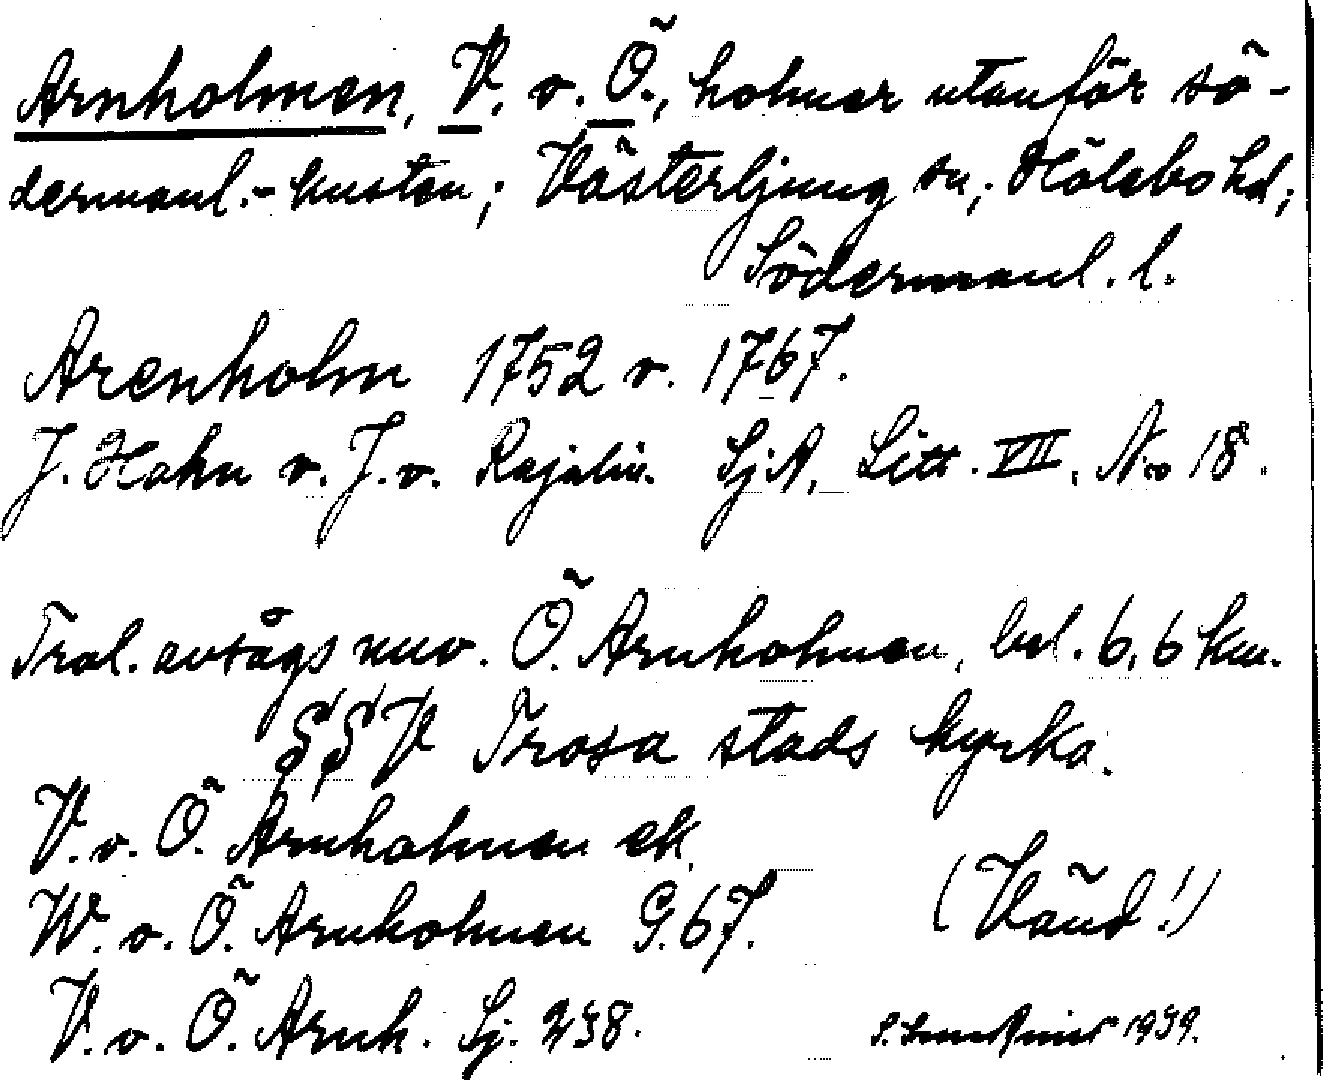 Arnholmen, V. o. Ö., holmar utanför sö-
dermanl.-kusten; Västerljung sn; Hölebo hd;
Södermanl. l.
Arenholm 1752 o. 1767.
J. Hahn o. J. v. Rajalin. SjA, Litt. VII, No 18.
Trol. avsågs nuv. Ö. Arnholmen, bel. 6,6 km.
§§V Trosa stads kyrka.
V. o. Ö. Arnholmen ek.
W. o. Ö. Arnholmen G. 67.
(Vänd!)
V. o. Ö. Arnh. Sj. 238.
1939.